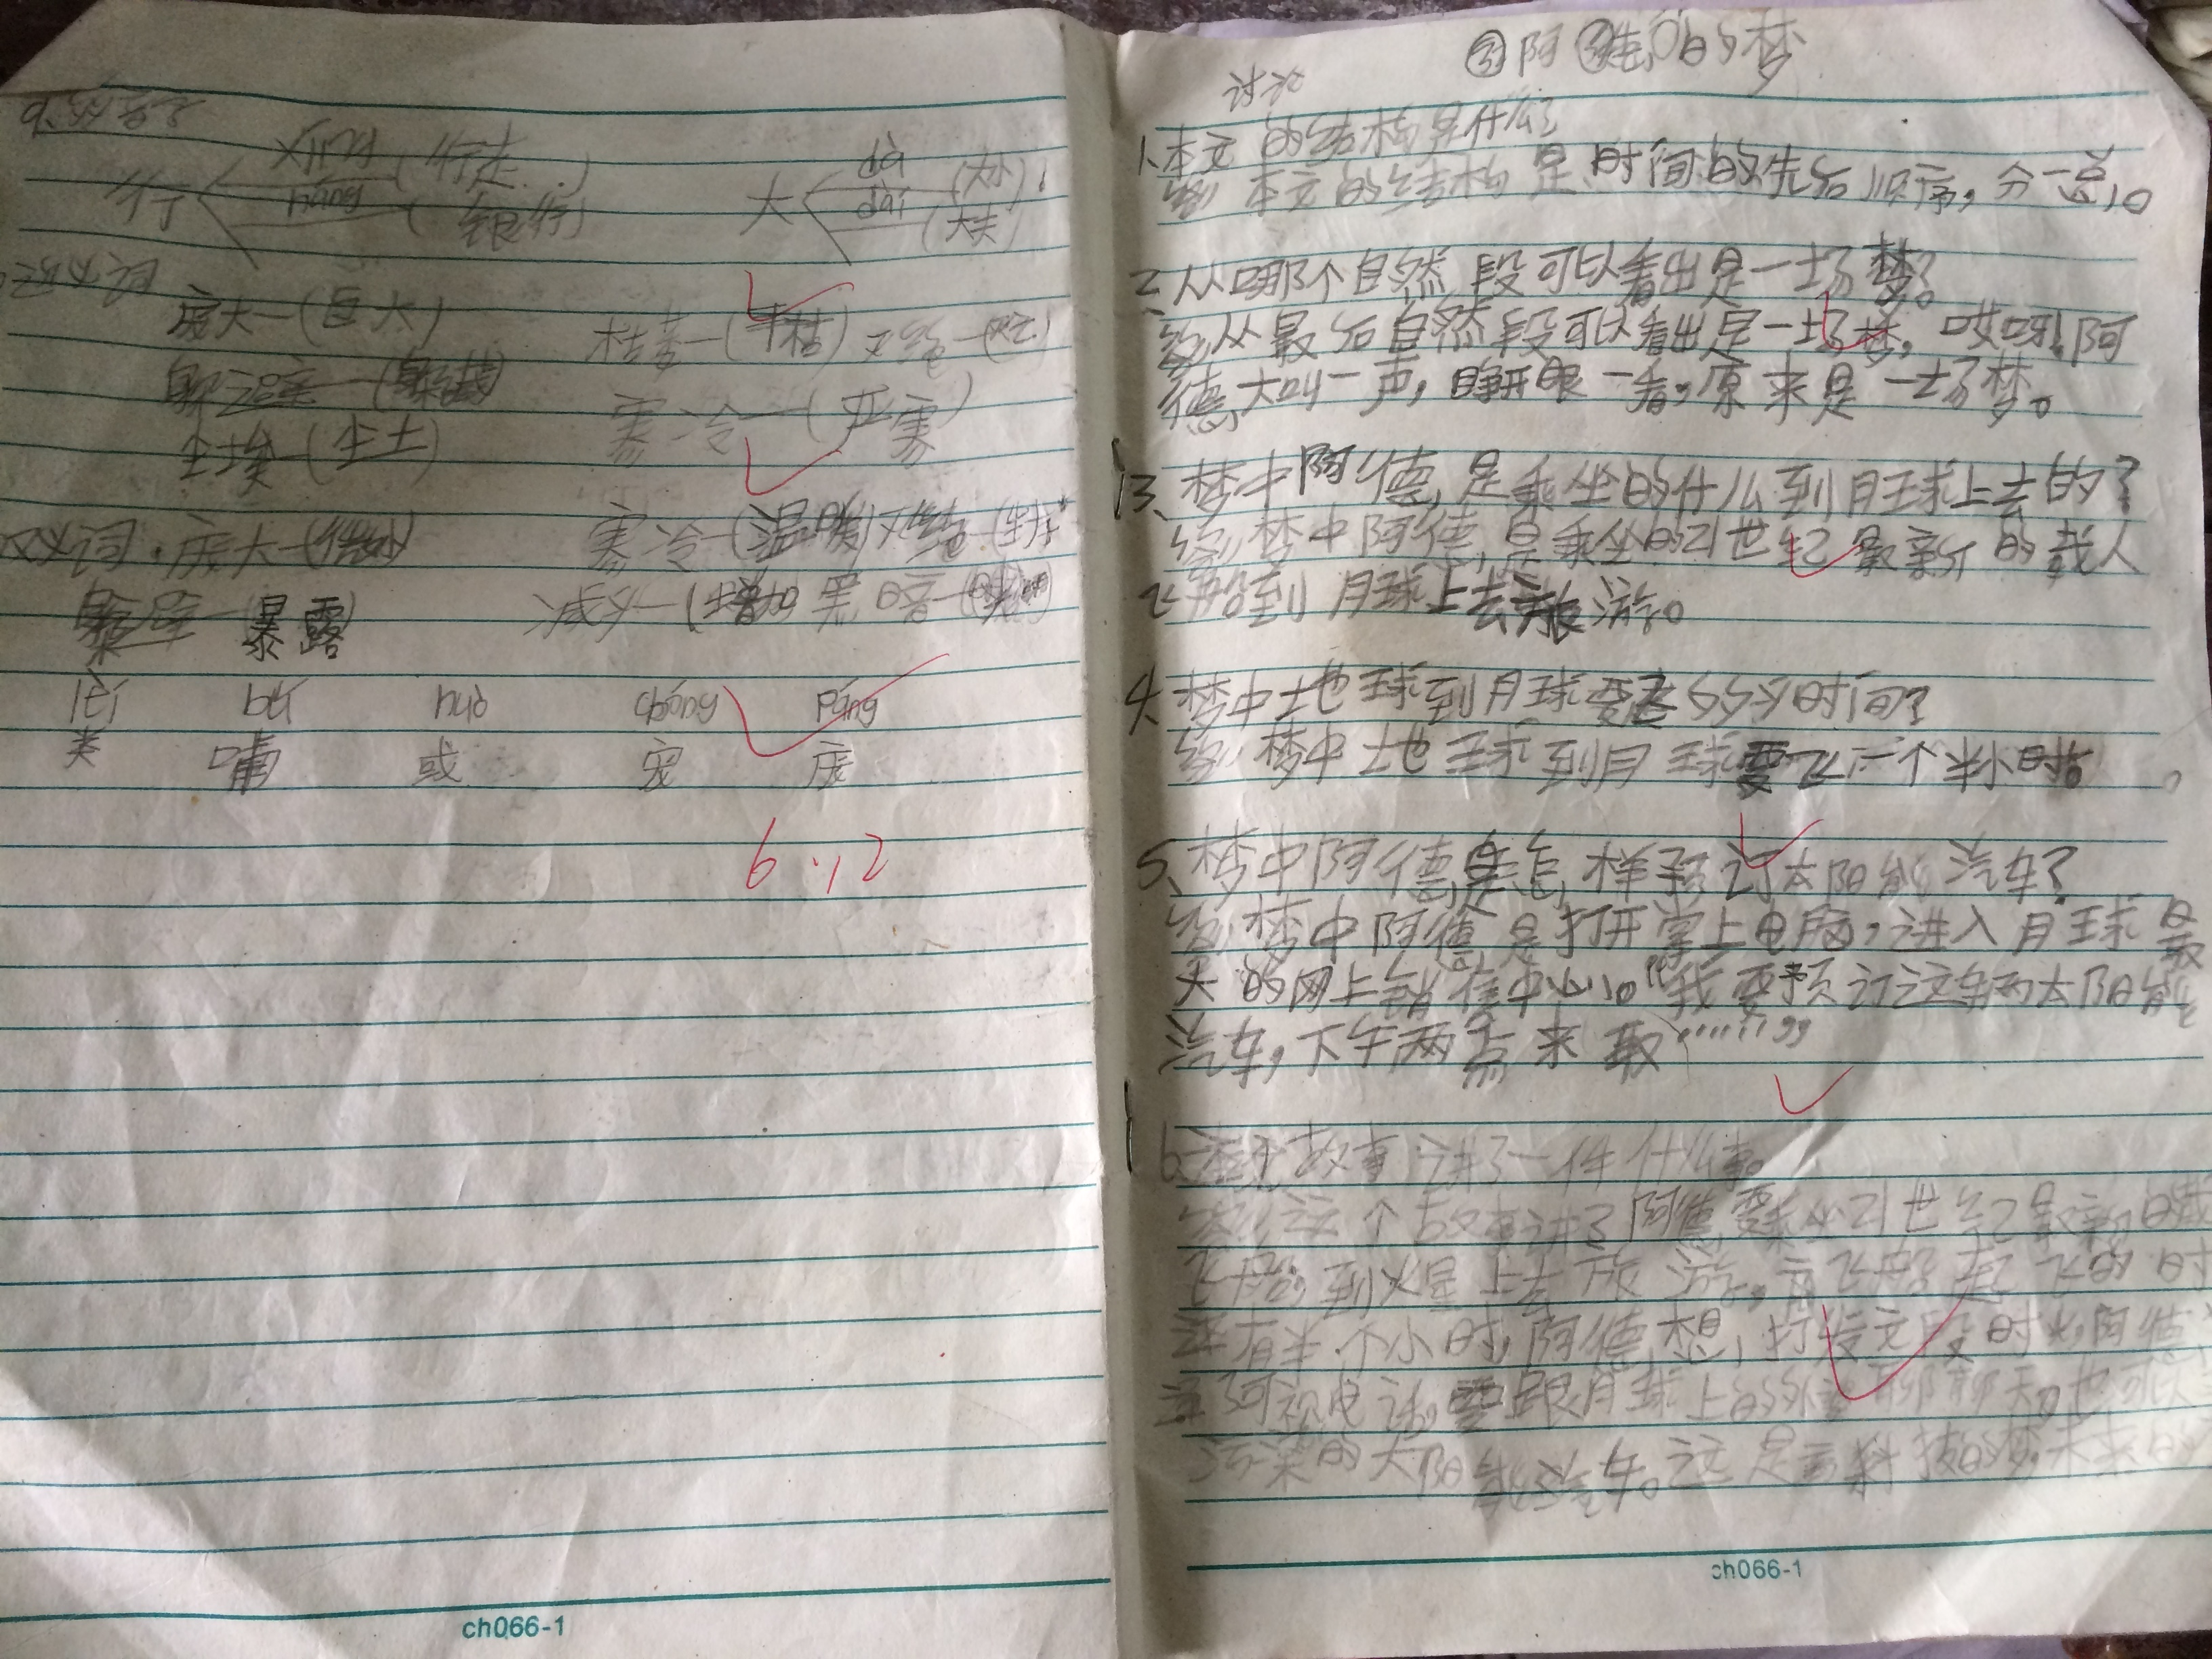 行 xíng (行走)
háng (银行)
大 dà (大小)
dài (大夫)
庞大—(巨大) 枯萎—(干枯) 灭绝—
躲避—(躲藏) 寒冷—(严寒)
尘埃—(尘土)
反义词 庞大— 寒冷—(温暖) 灭绝—
躲避—(暴露) 减少—(增加) 黑暗—
lèi bǔ huò chǒng páng
类 哺 或 宠 庞
6.12
③阿德的梦
讨论
1、本文的结构是什么?
本文的结构是时间的先后顺序,分一总。
2、从哪个自然段可以看出是一场梦?
从最后自然段可以看出是一场梦,哎呀!阿
德大叫一声,睁开眼一看,原来是一场梦。
3、梦中阿德是乘坐的什么到月球上去的?
梦中阿德是乘坐的21世纪最新的载人
飞船到月球上去旅游。
4、梦中地球到月球要飞多少时间?
梦中地球到月球要飞一个半小时。
5、梦中阿德是怎样预订太阳能汽车?
梦中阿德是打开掌上电脑,进入月球最
大的网上销售中心。“我要预订这辆太阳能
汽车,下午两点来取……”
6、故事讲了一件什么事。
这个故事讲了阿德要乘坐21世纪最新的载
飞船到火星上去旅游,离飞船起飞的时
还有半个小时,阿德想,打发时光,阿德
视电话,要跟月球上的聊聊天,也可以
污染的太阳能汽车。这是高科技的梦,未来的
ch066-1
ch066-1